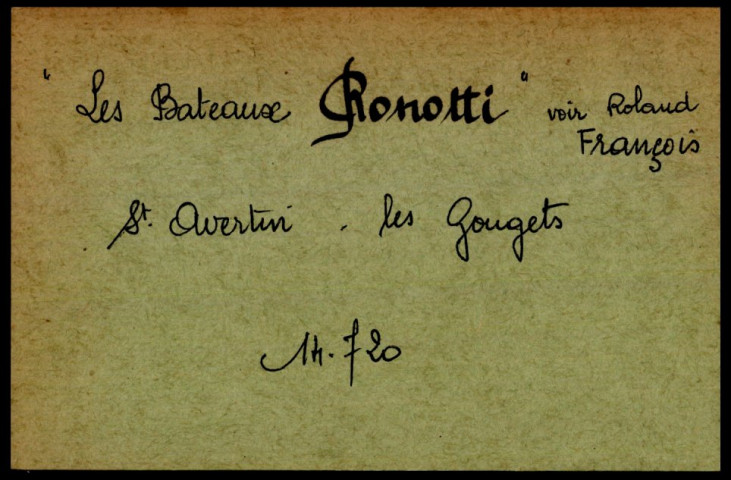 "Les Bateaux Ronotti" voir Roland
François
St. Avertin . les Gougets
14.720